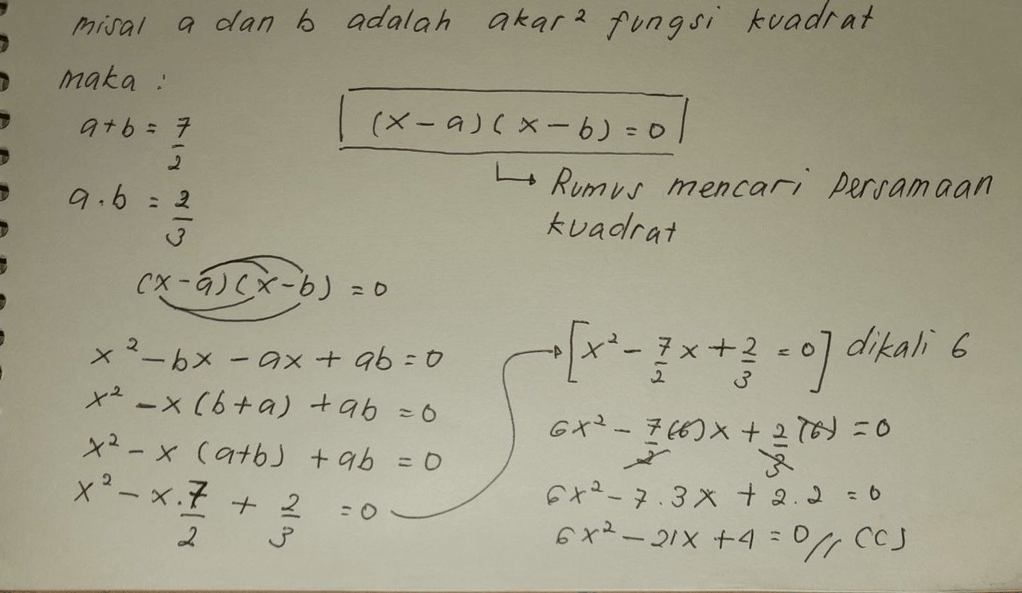 misal a dan b adalah akar² fungsi kuadrat
maka :
a+b = 7/2
a.b = 2/3
(x-a)(x-b) = 0
↳ Rumus mencari persamaan
kuadrat
(x-a)(x-b) = 0
x² - bx - ax + ab = 0
x² - x (b+a) + ab = 0
x² - x (a+b) + ab = 0
x² - x.7/2 + 2/3 = 0
[x² - 7/2 x + 2/3 = 0] dikali 6
6x² - 7/2 (6)x + 2/3 (6) = 0
6x² - 7.3x + 2.2 = 0
6x² - 21x + 4 = 0 // (C)